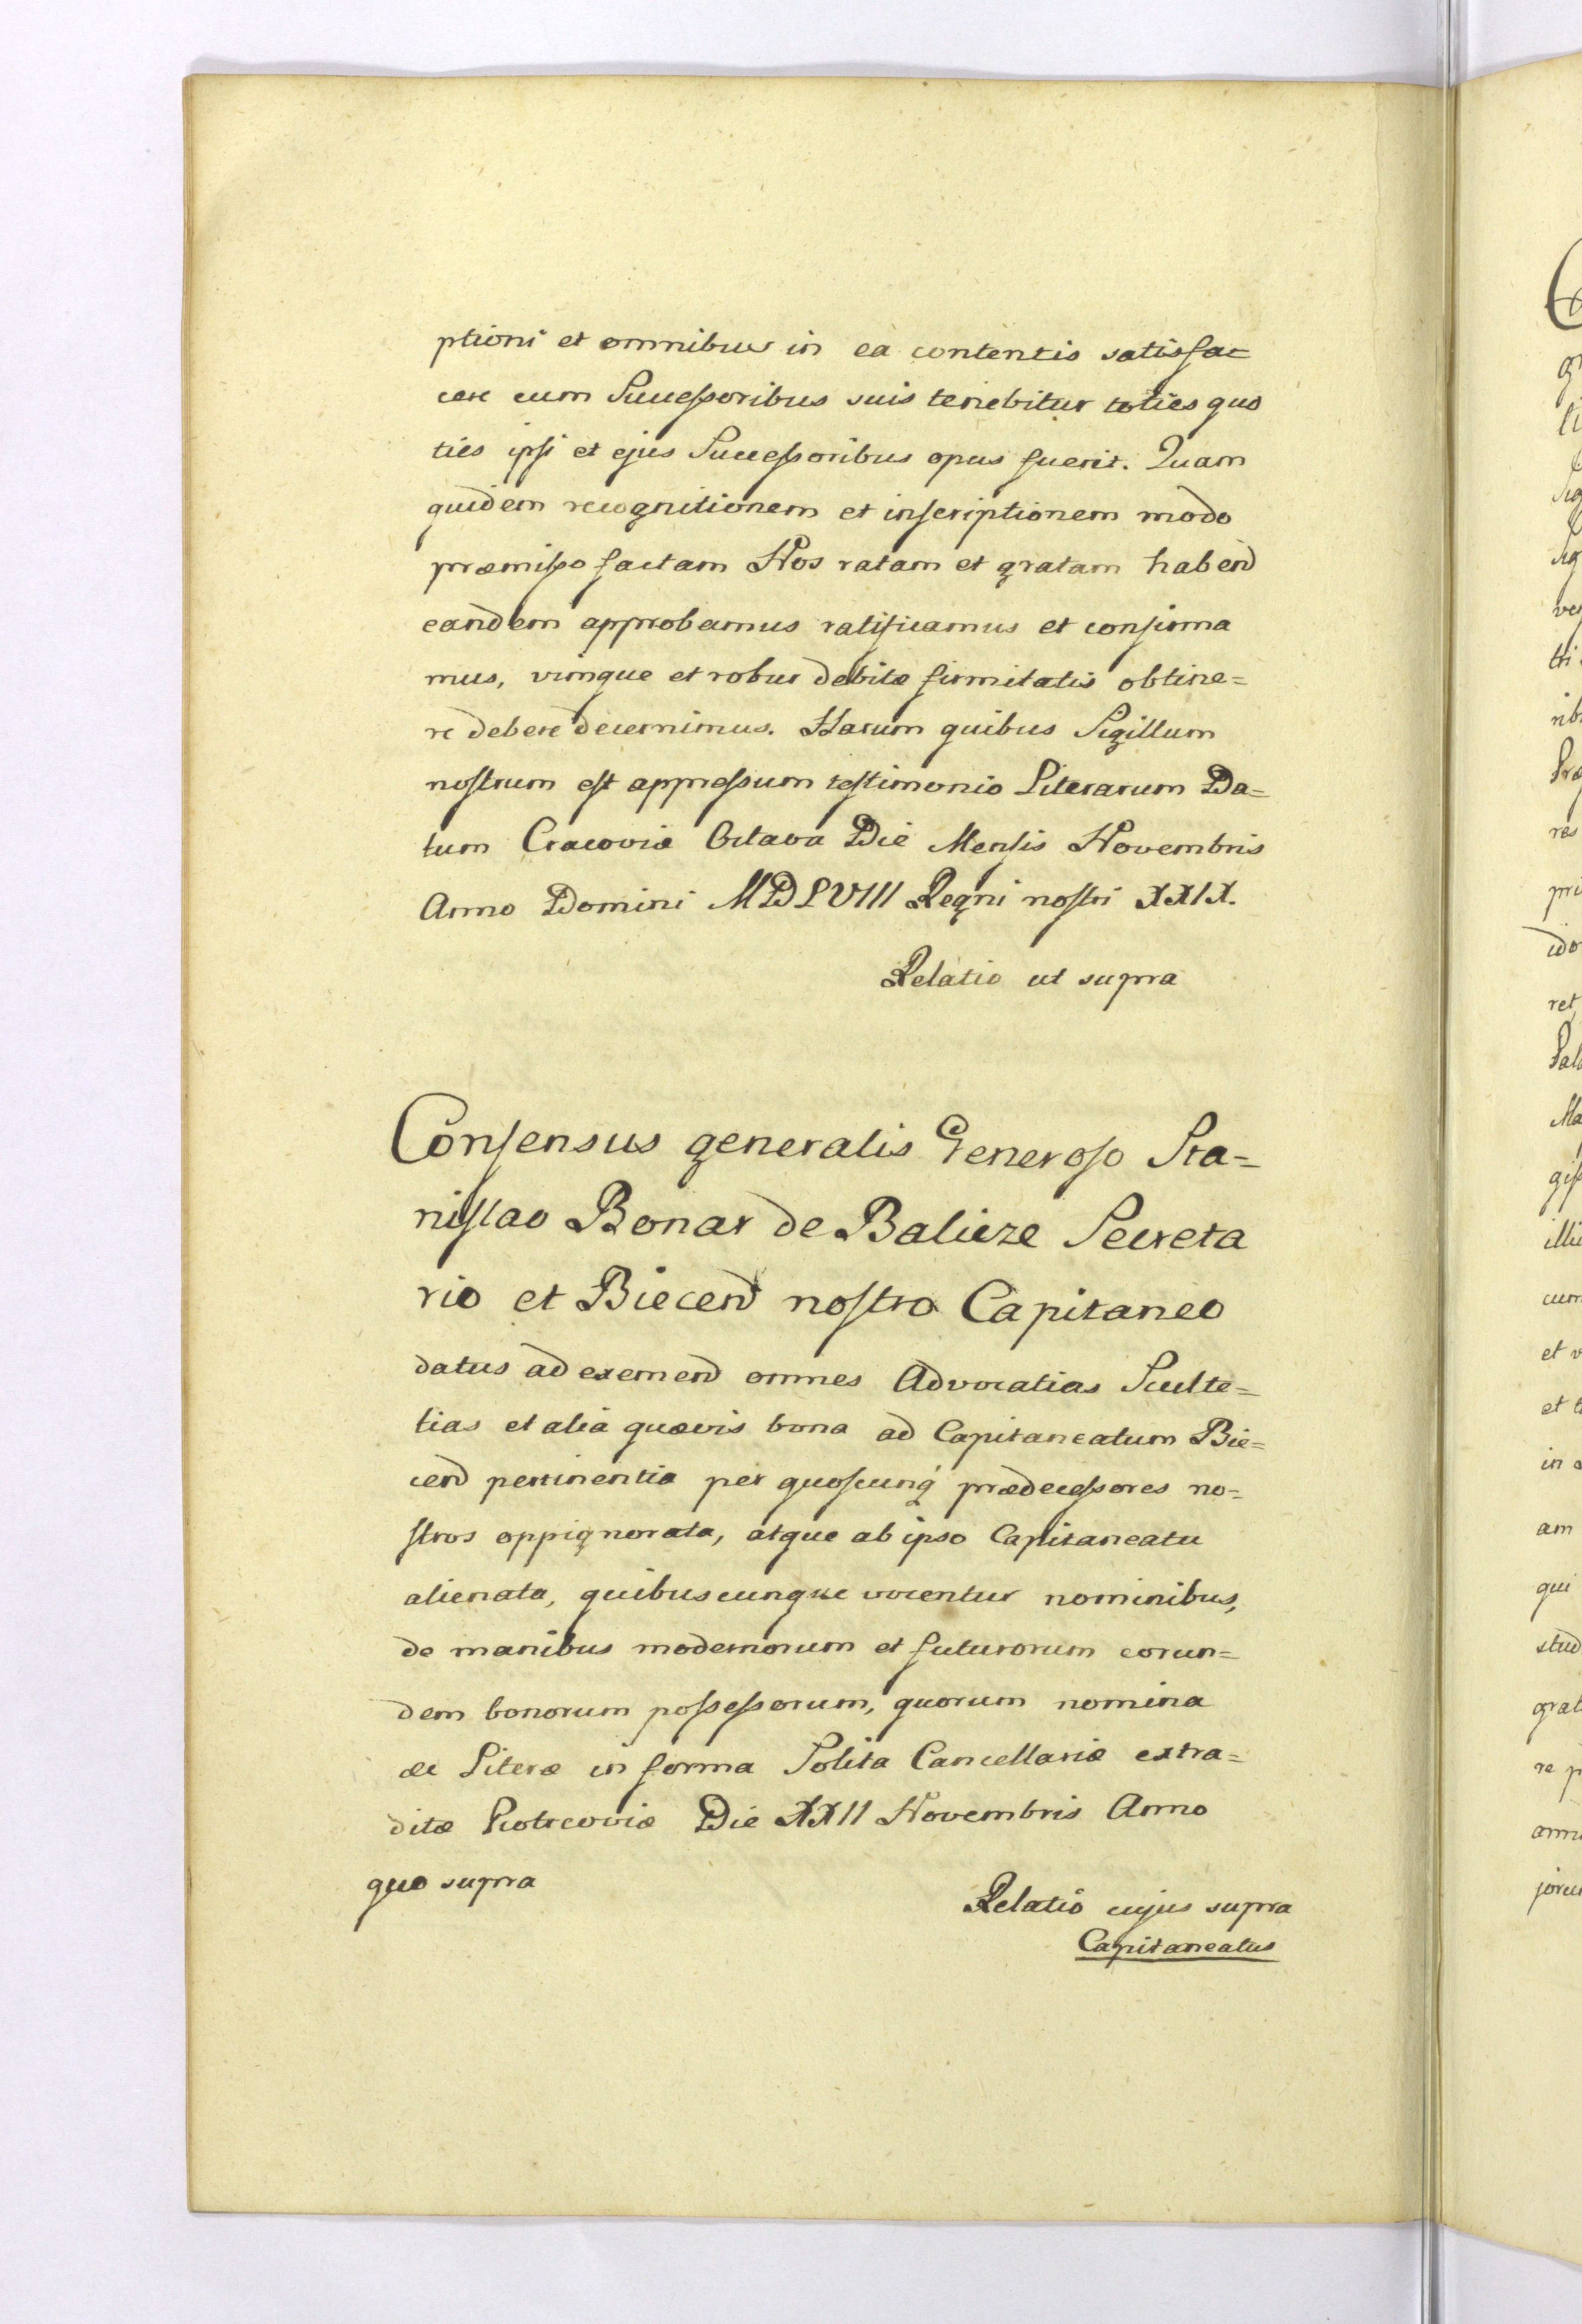 ptioni et omnibus in ea contentis satisfac
cere cum Successoribus suis tenebitur toties quo
ties ipsi et ejus Successoribus opus fuerit. Quam
quidem recognitionem et inscriptionem modo
præmisso factam Nos ratam et gratam habend
eandem approbamus ratificamus et confirma
mus, vimque et robur debitæ firmitatis obtine=
re debere decernimus. Harum quibus Sigillum
nostrum est appressum testimonio Literarum Da=
tum Cracoviæ Octava Die Mensis Novembris
Anno Domini MDLVIII Regni nostri XXIX.
Relatio ut supra
Consensus generalis Generoso Sta=
nislao Bonar de Balicze Secreta
rio et Biecend nostro Capitaneo
datus ad exemend omnes Advocatias Sculte=
tias et alia quævis bona ad Capitaneatum Bie=
cend pertinentia per quoscunq̃ prædecessores no=
stros oppignorata, atque ab ipso Capitaneatu
alienata, quibuscunque vocentur nominibus,
de manibus modernorum et futurorum eorun=
dem bonorum possessorum, quorum nomina
etc Literæ in forma Solita Cancellariæ extra=
ditæ Piotrcoviæ Die XXII Novembris Anno
quo supra
Relatio cujus supra
Capitaneatus